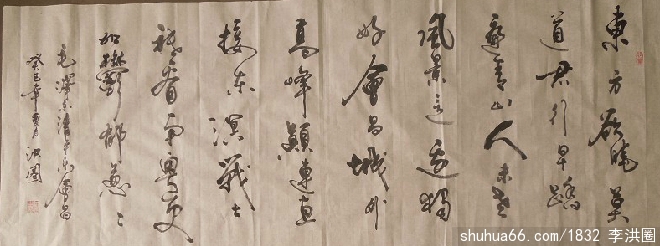 東方欲曉莫
道君行早踏
遍青山人未老
風景这边獨
好會昌城外
高峰顛連直
接東溟戰士
指看南粵更
加鬱郁葱々
毛澤东清平乐會昌
癸巳年夏月洪圈
shuhua66.com/1832 李洪圈